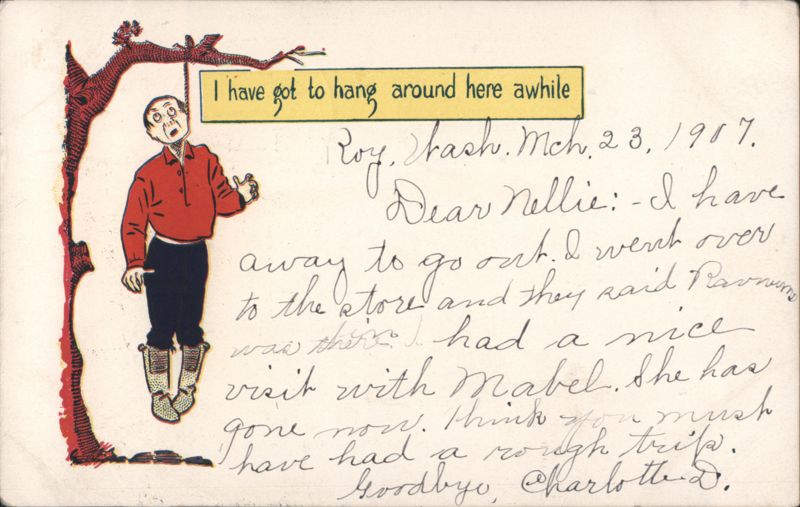 I have got to hang around here awhile
Roy, Wash. Mch. 23, 1907.
Dear Nellie:- I have
away to go out. I went over
to the store and they said
was there. I had a nice
visit with Mabel. She has
gone now. I think you must
have had a rough trip.
Goodbye, Charlotte D.